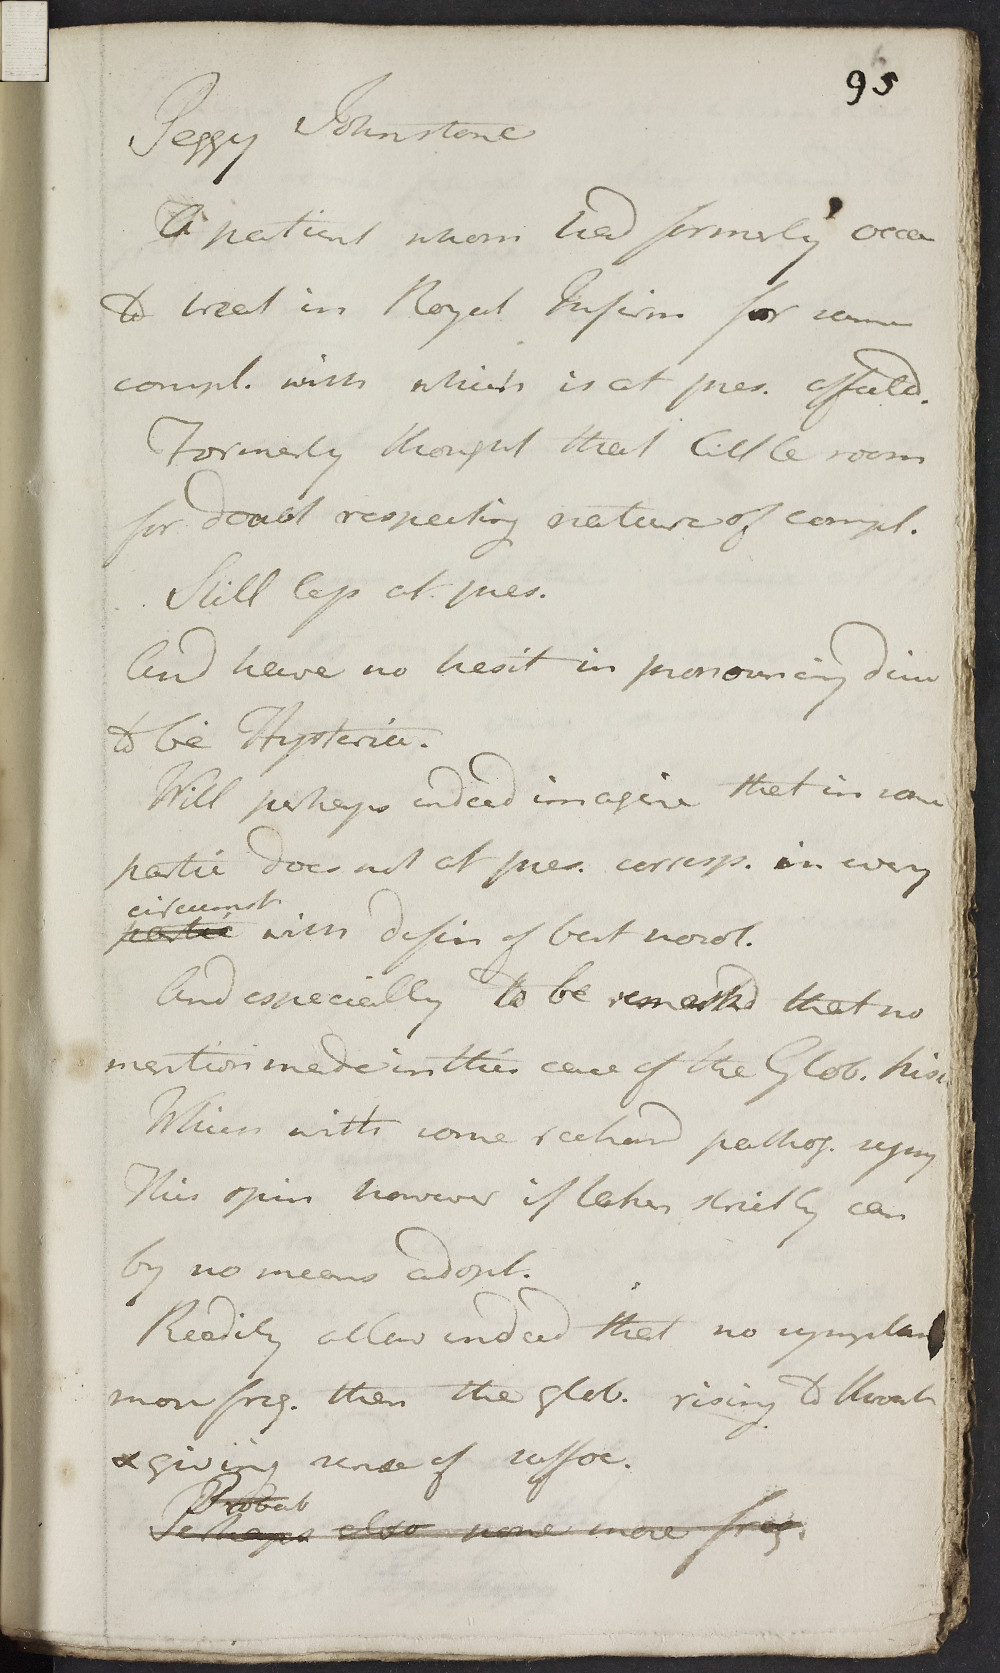 95
Peggy Johnstone
A patient whom had formerly occa
to treat in Royal Infirm for same
compl. with which is at pres. affected.
Formerly thought that little room
for doubt respecting nature of compl.
Still less at pres.
And have no hesit in pronouncing
to be Hysteria.
Will perhaps indeed imagine that in some
partic does not at pres. corresp. in every
circumst
partic with defin of best nosol.
And especially to be remarkd that no
mention made in this case of the Glob. hist
Which with some reckond pathog. symp
This opin however if taken strictly can
by no means adopt.
Readily allow indeed that no symptom
more freq. than the glob. rising to throat
& giving sense of suffoc.
Probab
Perhaps also none more freq.